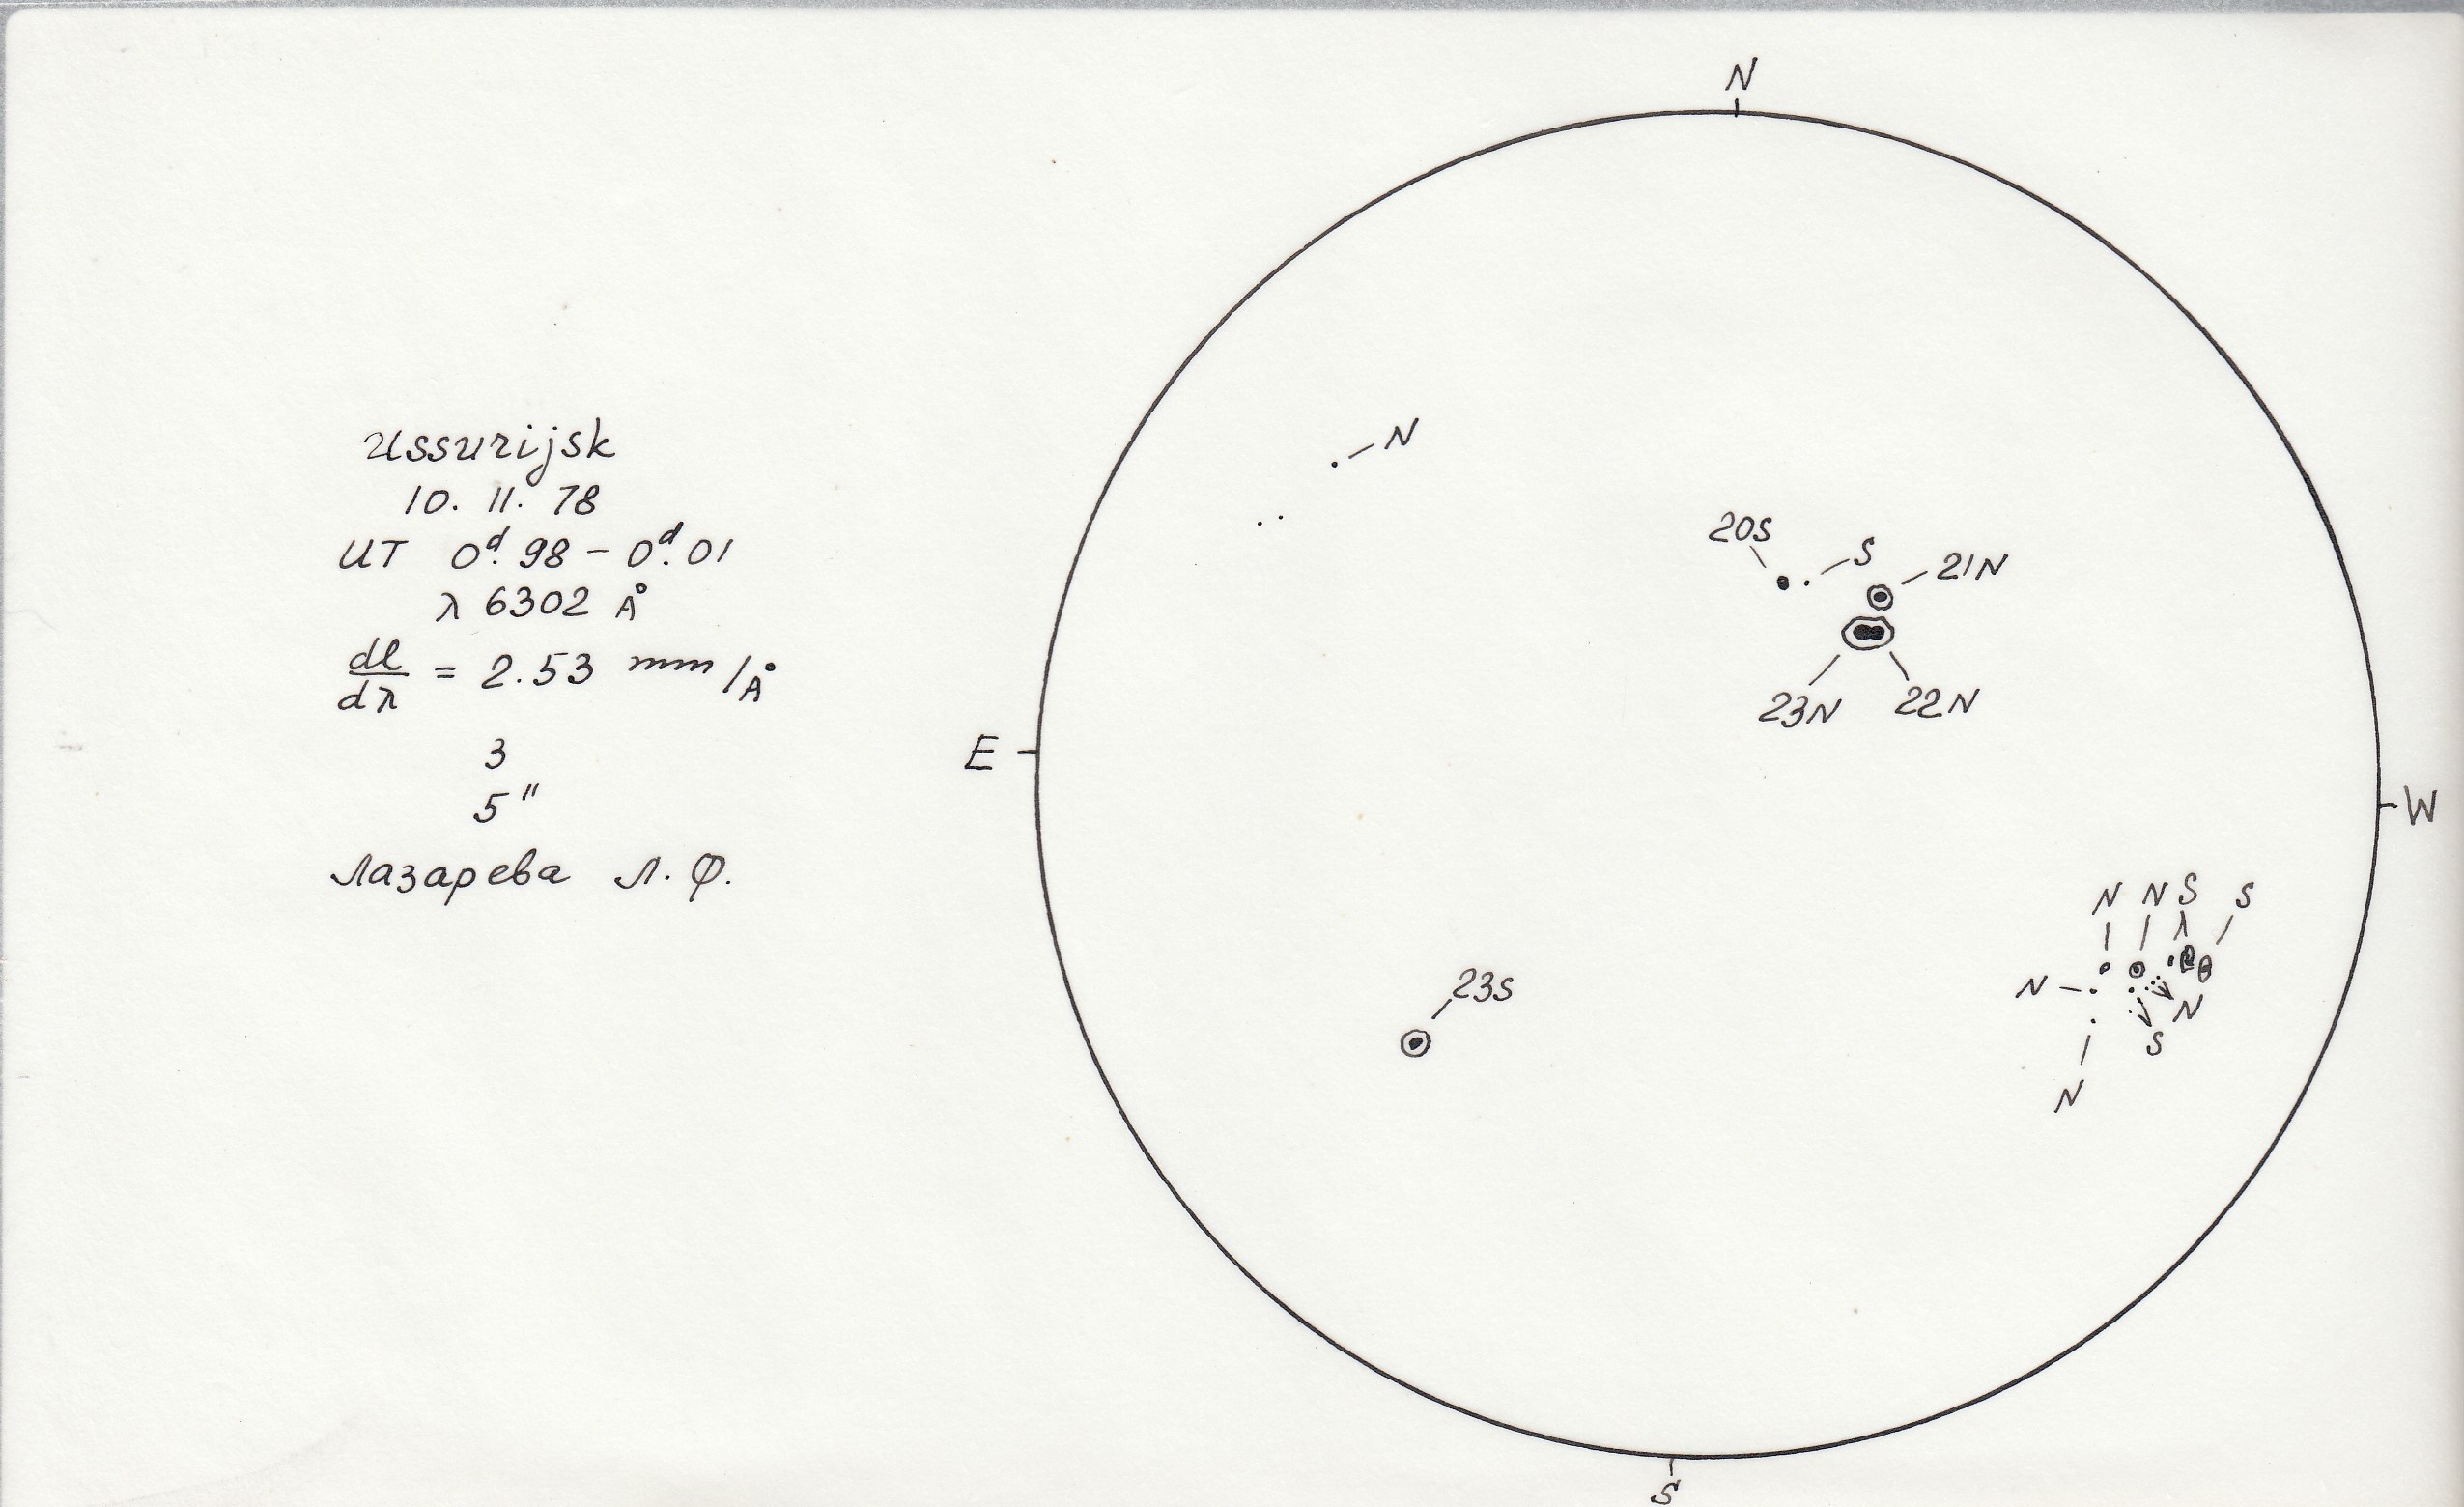 Ussurijsk
10. 11. 78
UT 0ᵈ.98 – 0ᵈ.01
λ 6302 Å
dl/dλ = 2.53 mm/Å
3
5"
Лазарева Л. Ф.
N
N
20S
S
21N
23N
22N
E
W
N
N
S
S
23S
N
N
S
N
S